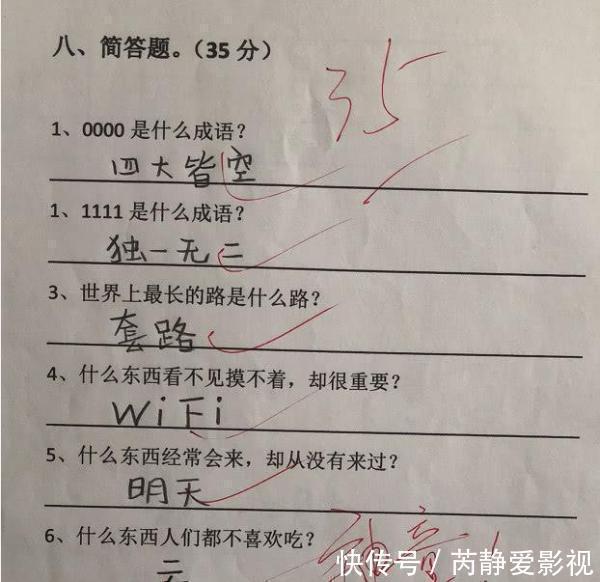 八、简答题。（35 分）
35
1、0000 是什么成语？
四大皆空
1、1111 是什么成语？
独一无二
3、世界上最长的路是什么路？
套路
4、什么东西看不见摸不着，却很重要？
WiFi
5、什么东西经常会来，却从没有来过？
明天
6、什么东西人们都不喜欢吃？
快传号／芮静爱影视